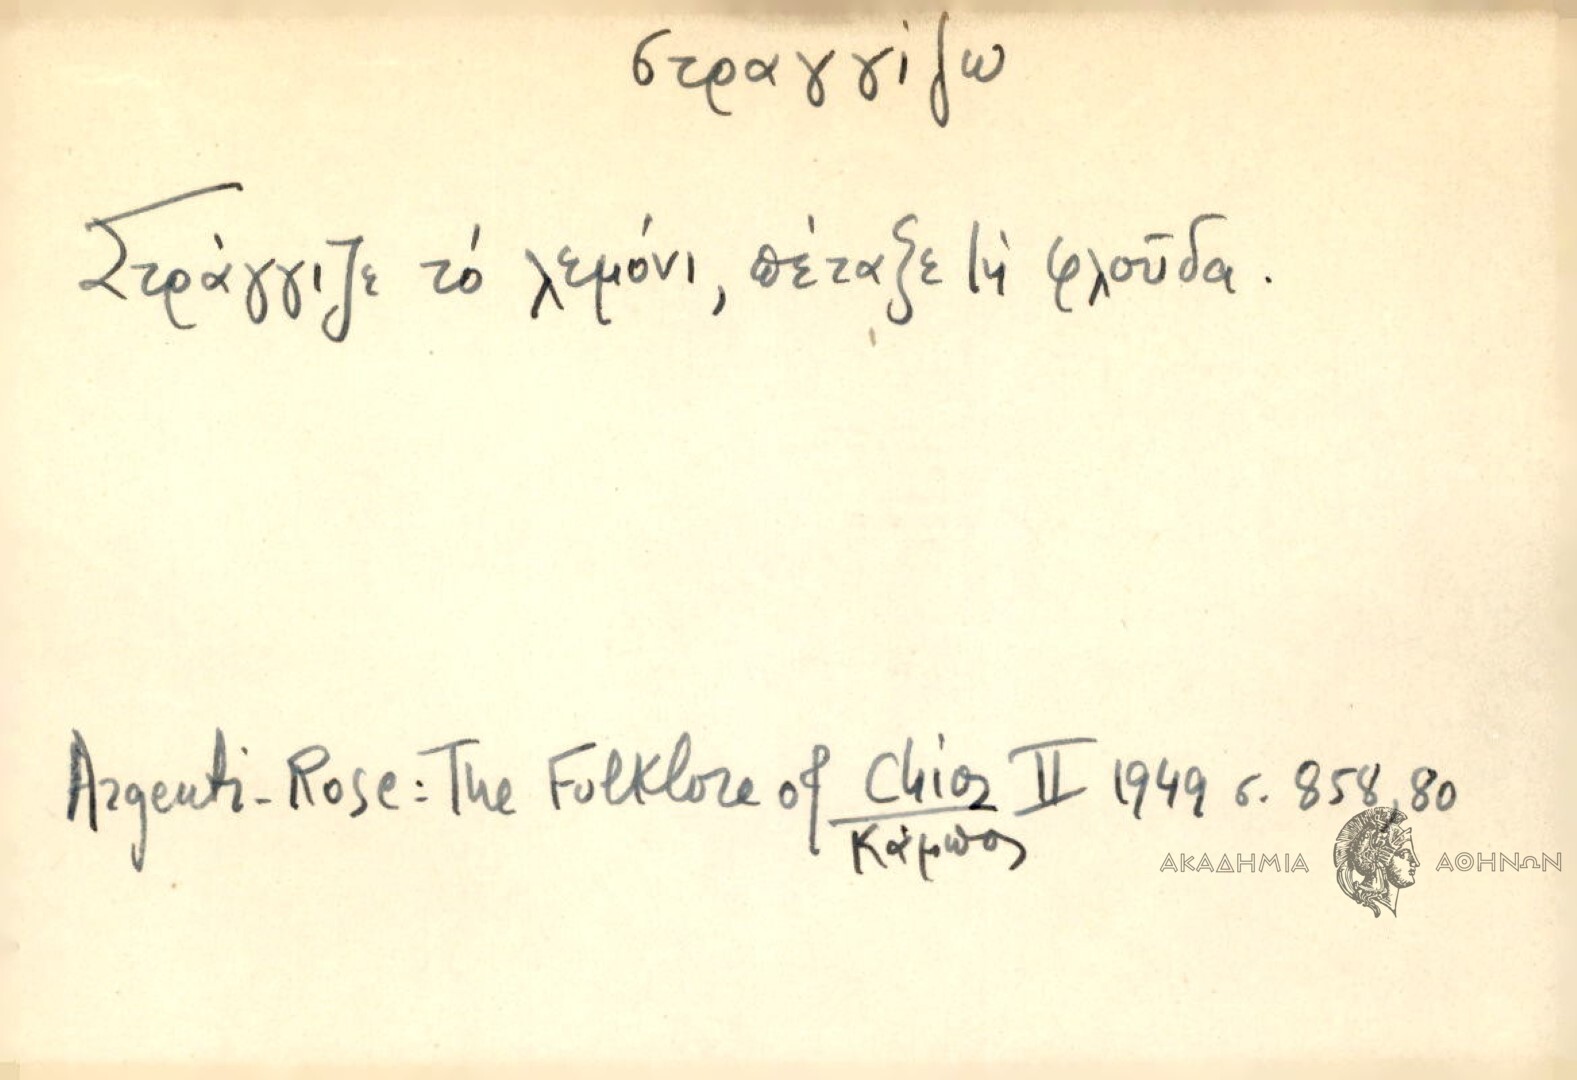 στραγγίζω
Στράγγιζε τό λεμόνι, πέταξε τή φλοῦδα.
Argenti-Rose: The Folklore of Chios II 1949 σ. 858,80
Κάμπος
ΑΚΑΔΗΜΙΑ ΑΘΗΝΩΝ